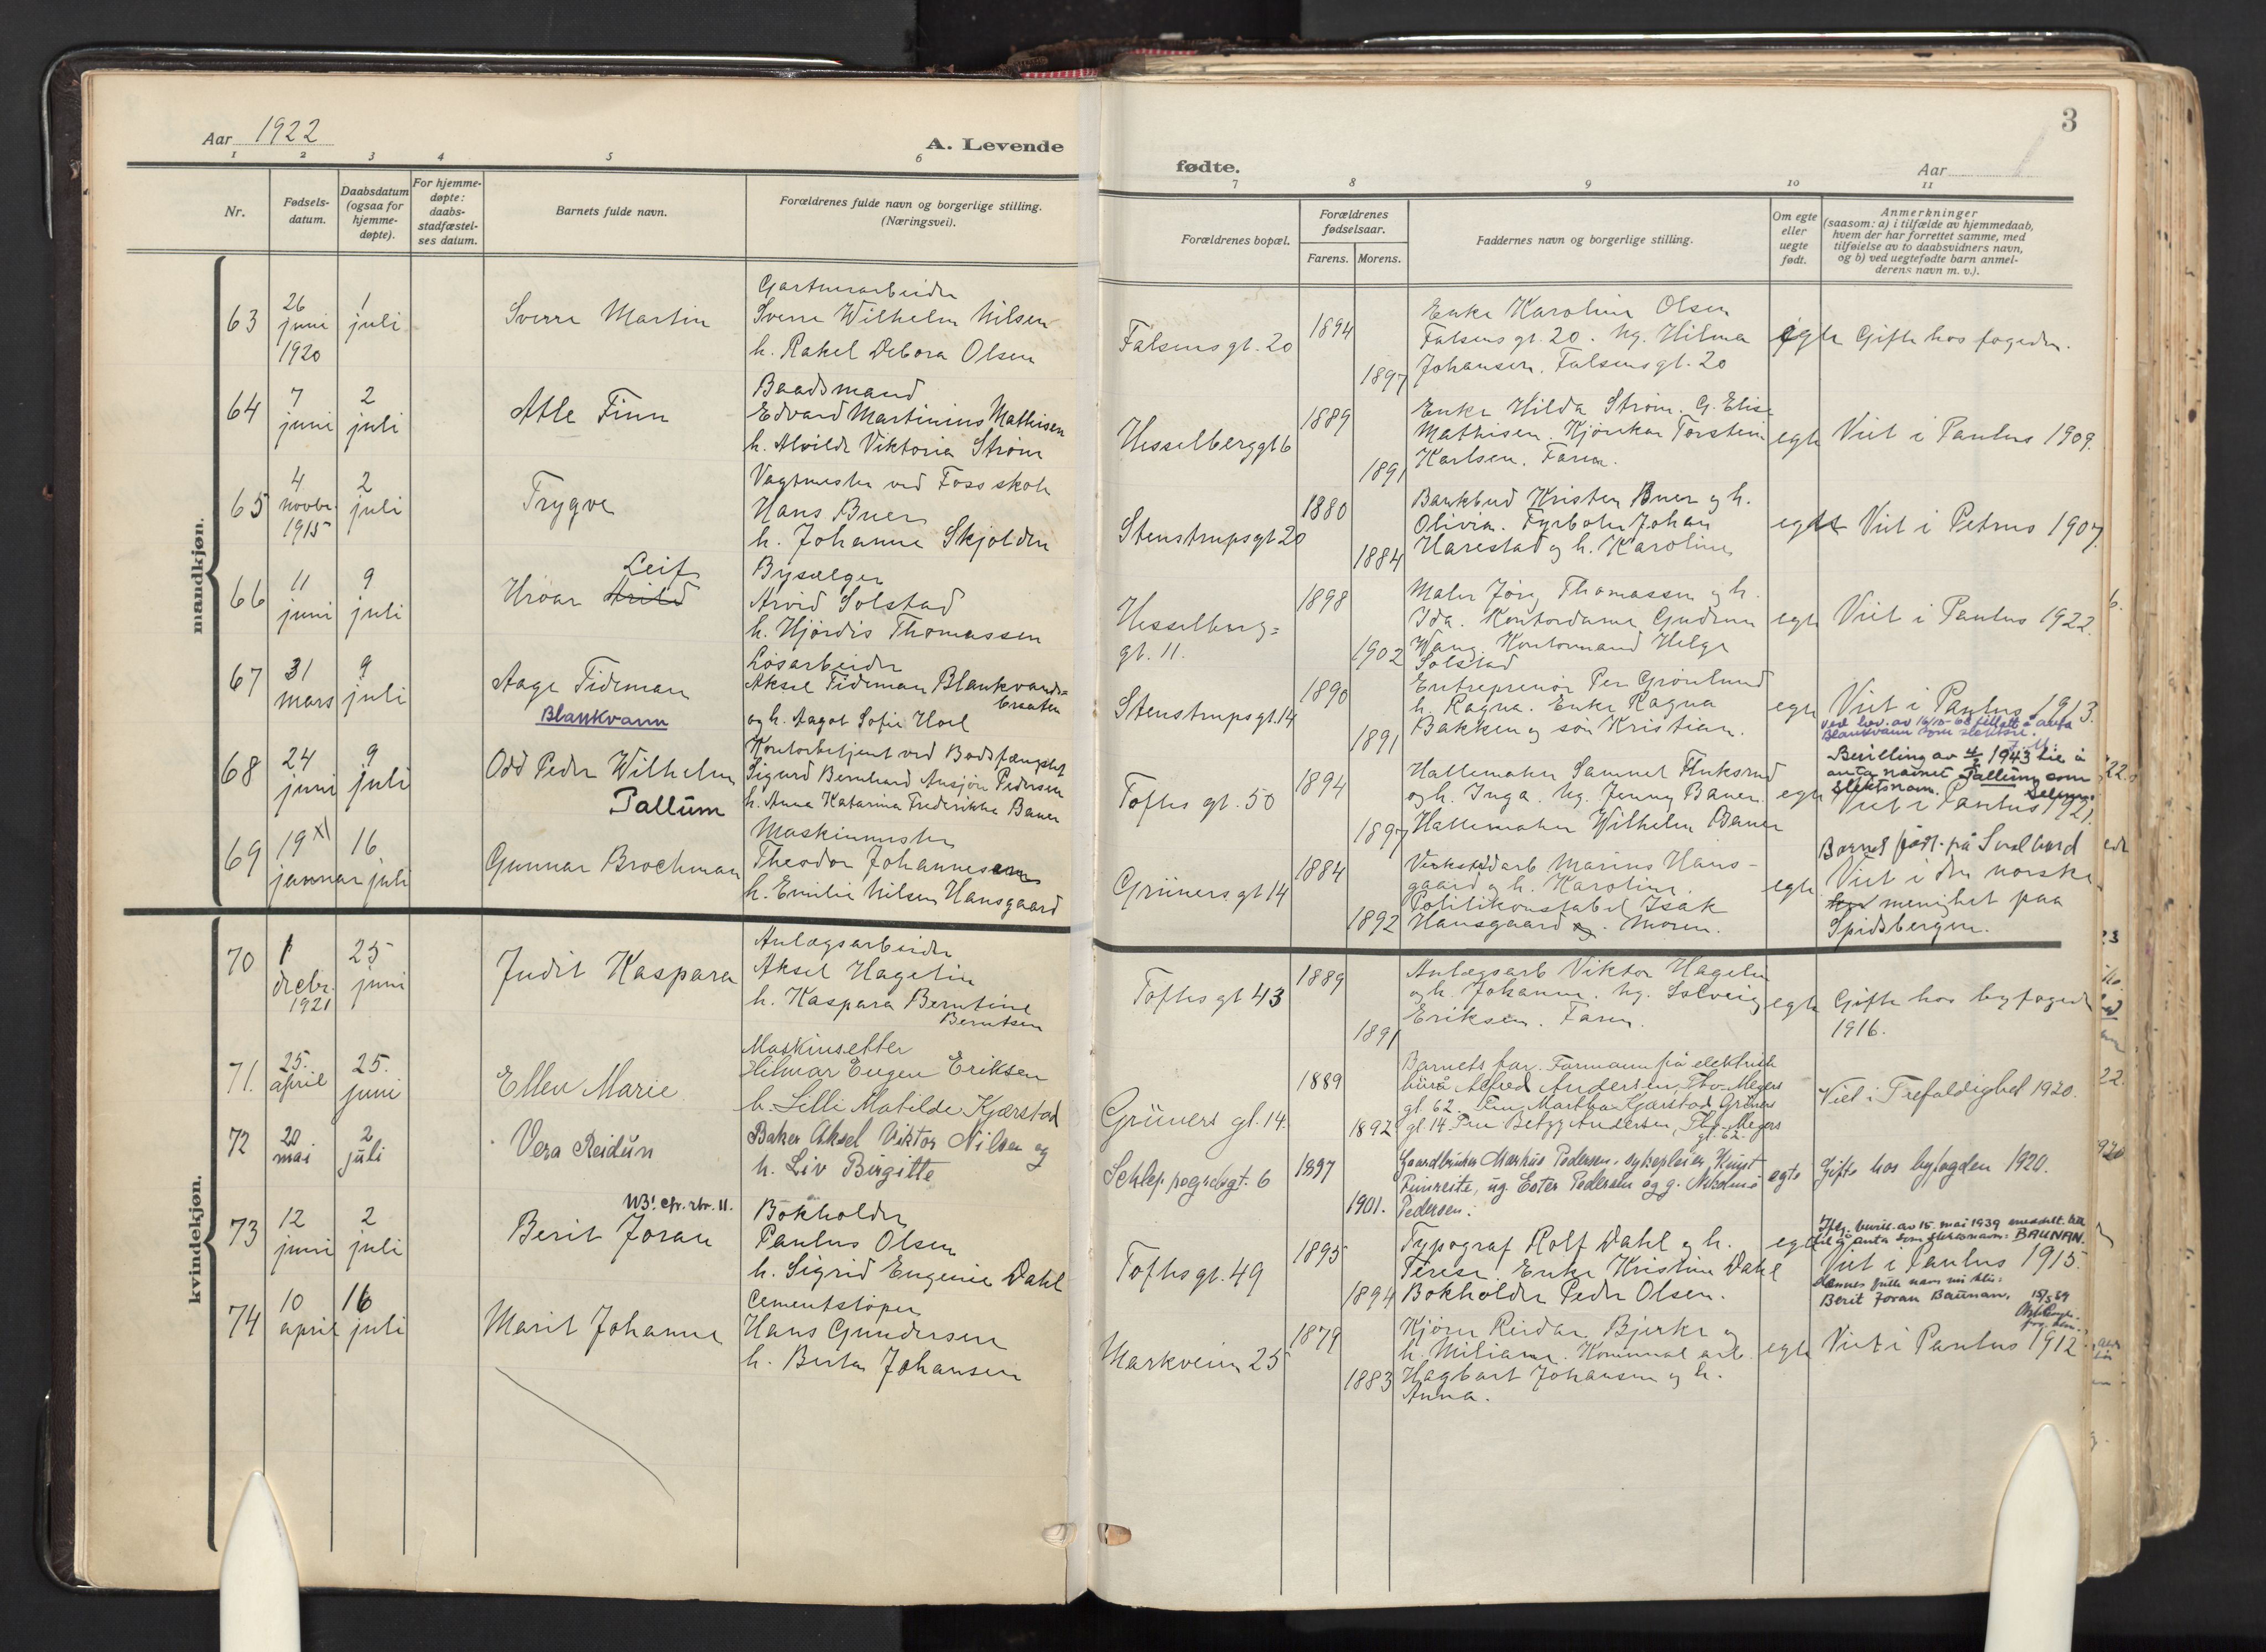 Aar 1922
A. Levende
1 2 3 4 5 6
Nr.
Fødsels-
datum.
Daabsdatum
(ogsaa for
hjemme-
døpte).
For hjemme-
døpte:
daabs-
stadfæstel-
ses datum.
Barnets fulde navn.
Forældrenes fulde navn og borgerlige stilling.
(Næringsvei).
mandkjøn.
63
26
juni
1920
1
juli
Sverre Martin
Gartnerarbeider
Sverre Wilhelm Nilsen
h. Rakel Debora Olsen
64
7
juni
2
juli
Atle Finn
Baadsmand
Edvard Martinius Mathisen
h. Alvilde Viktoria Strøm
65
4
novbr.
1915
2
juli
Trygve
Vagtmester ved Foss skole
Hans Buer
h. Johanne Skjolden
66
11
juni
9
juli
Leif
Hroar Arild
Bysælger
Arvid Solstad
h. Hjørdis Thomassen
67
31
mars
9
juli
Aage Tideman
Blankvann
Løsarbeider
Aksel Tideman Blankvands=
braaten
og h. Aagot Sofie Hoel
68
24
juni
9
juli
Odd Peder Wilhelm
Pallum
Kontorbetjent ved Bodsfængslet
Sigurd Bernhard Ansjøn Pedersen
h. Anna Katarina Frederikke Bauer
69
19 x)
januar
16
juli
Gunnar Brochman
Maskinmester
Theodor Johannesen
h. Emilie Nilsen Hansgaard
kvindekjøn.
70
1
decbr.
1921
25
juni
Judit Kaspara
Anlægsarbeider
Aksel Hagelin
h. Kaspara Berntine
Berntsen
71.
25.
april
25.
juni
Ellen Marie
Maskinsetter
Hilmar Eugen Eriksen
h. Lilli Matilde Kjærstad
72
20
mai
2
juli
Vera Reidun
Baker Aksel Viktor Nilsen og
h. Liv Birgitte
73
12
juni
2
juli
NB! cfr. rbr. 11.
Berit Joran
Bokholder
Paulus Olsen
h. Sigrid Eugenie Dahl
74
10
april
16
juli
Marit Johanne
Cementstøper
Hans Gundersen
h. Berta Johansen
3
fødte.
Aar
7 8 9 10 11
Forældrenes bopæl.
Forældrenes
fødselsaar.
Farens. Morens.
Faddernes navn og borgerlige stilling.
Om egte
eller
uegte
født.
Anmerkninger
(saasom: a) i tilfælde av hjemmedaab,
hvem der har forrettet samme, med
tilføielse av to daabsvidners navn,
og b) ved uegtefødte barn anmel-
derens navn m. v.).
Falsens gt. 20
1894
1897
Enke Karoline Olsen
Falsens gt. 20. Ug. Hilma
Johansen. Falsens gt. 20
egte
Gifte hos fogeden.
Hesselberggt 6
1889
1891
Enke Hilda Strøm. G. Elise
Mathisen. Kjørekar Torstein
Karlsen. Faren.
egte
Viet i Paulus 1909.
Stenstrupsgt 20
1880
1884
Bankbud Kristen Buer og h.
Olivia. Fyrbøter Johan
Harestad og h. Karoline
egte
Viet i Petrus 1907.
Hesselberg=
gt. 11.
1898
1902
Maler Jørg. Thomassen og h.
Ida. Kontordame Gudrun
Wang. Kontormand Helge
Solstad
egte
Viet i Paulus 1922.
Stenstrupsgt. 14
1890
1891
Entreprenør Per Grønlund
h. Ragna. Enke Ragna
Bakken og søn Kristian.
egte
Viet i Paulus 1913.
Blankvann som slektsn.
Toftes gt. 50
1894
1897
Hattemaker Samuel
og h. Inga. Ug. Jenny Bauer.
Hattemaker Wilhelm Bauer
egte
Bevilling av 1943 til å
anta navnet Pallum som
slektsnavn.
Viet i Paulus 1921.
Grüners gt 14
1884
1892
Verkstedarb Marius Hans-
gaard og h. Karoline.
Politikonstabel Isak
Hansgaard og. Moren.
egte
Barnet født på Svalbard
Viet i den norske
menighet paa
Spidsbergen.
Toftes gt 43
1889
1891
Anlægsarb Viktor Hagelin
og h. Johanne. Ug. Solveig
Eriksen. Faren.
egte
Gifte hos byfoged
1916.
Grüners gt. 14.
1889
1892
Barnets far. Formann på elektrisk
byrå Alfred Andersen, Thv. Meyers
gt. 62. Fru Martha Kjærstad Grüners
gt. 14. Fru Betzy Andersen, Thv. Meyers
gt. 62.
Viet i Trefoldighed 1920.
Schleppegrelsgt. 6
1897
1901.
Gaardbruker Markus Pedersen, sykepleier Kunst
Finreite, ug. Ester Pedersen og g. Nikoline
Pedersen.
egte
Gifte hos byfogden 1920.
Toftes gt. 49
1895
1894
Typograf Rolf Dahl og h.
Terese. Enke Kristine Dahl
Bokholder Peder Olsen.
egte
Iflg. bevil. av 15. mai 1939 meddelt
til å anta som slektsnavn: BAUNAN.
Viet i Paulus 1915.
Hennes fulle navn nu blir:
Berit Joran Baunan.
Markveien 25
1879
1883
Kjører Reidar Bjerke og
h. Miliane. Kommunal arb.
Hagbart Johansen og h.
Anna.
egte
Viet i Paulus 1912